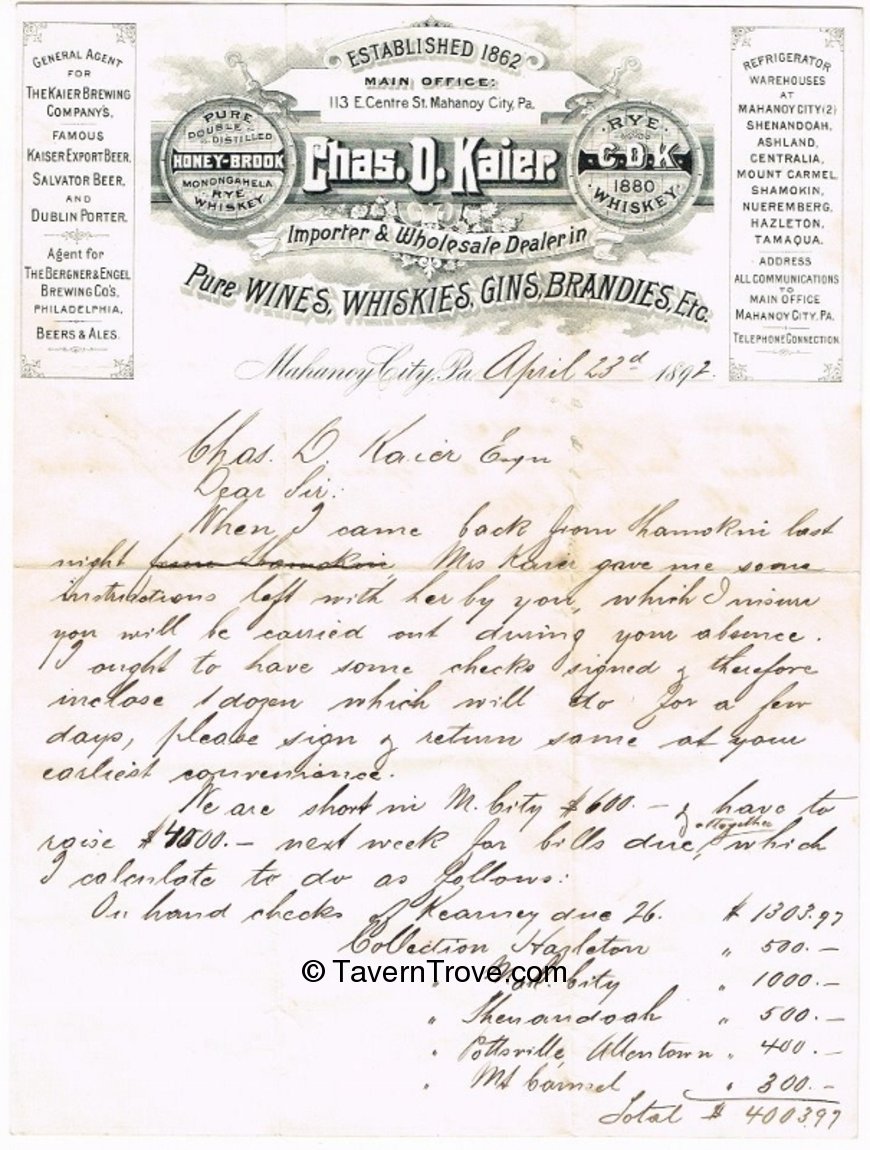 GENERAL AGENT
FOR
THE KAIER BREWING
COMPANY'S,
FAMOUS
KAISER EXPORT BEER,
SALVATOR BEER,
AND
DUBLIN PORTER.
Agent for
THE BERGNER & ENGEL
BREWING CO'S,
PHILADELPHIA,
BEERS & ALES.
ESTABLISHED 1862
MAIN OFFICE:
113 E. Centre St. Mahanoy City, Pa.
PURE
DOUBLE DISTILLED
HONEY-BROOK
MONONGAHELA
RYE
WHISKEY
Chas. D. Kaier.
RYE
C.D.K.
1880
WHISKEY
Importer & Wholesale Dealer in
Pure WINES, WHISKIES, GINS, BRANDIES, Etc.
REFRIGERATOR
WAREHOUSES
AT
MAHANOY CITY (2)
SHENANDOAH,
ASHLAND,
CENTRALIA,
MOUNT CARMEL,
SHAMOKIN,
NUEREMBERG,
HAZLETON,
TAMAQUA.
ADDRESS
ALL COMMUNICATIONS
TO
MAIN OFFICE
MAHANOY CITY, PA.
TELEPHONE CONNECTION.
Mahanoy City, Pa. April 23d 1892.
Chas. D. Kaier Esqu
Dear Sir:
When I came back from Shamokin last
night from Shamokin, Mrs Kaier gave me some
instructions left with her by you, which I insure
you will be carried out during your absence.
I ought to have some checks signed & therefore
inclose 1 dozen which will do for a few
days, please sign & return same at your
earliest convenience.
We are short in M. City $600.— & have to
raise $4000.— next week for bills due, altogether which
I calculate to do as follows:
On hand checks of Kearney due 26. $ 1303.97
Collection Hazleton " 500.—
" Mah. City " 1000.—
" Shenandoah " 500.—
" Pottsville, Allentown " 400.—
" Mt Carmel " 300.—
Total $ 4003.97
© TavernTrove.com